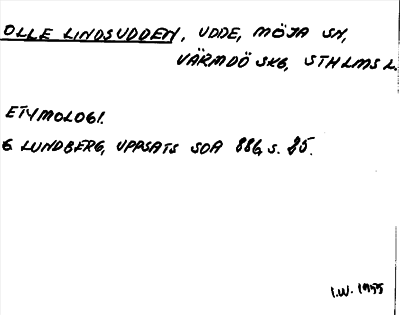 OLLE LINDSUDDEN, UDDE, MÖJA SN,
VÄRMDÖ SKG, STHLMS L.
ETYMOLOGI.
G LUNDBERG, UPPSATS SOA 886, s. 25.
I.W. 1955